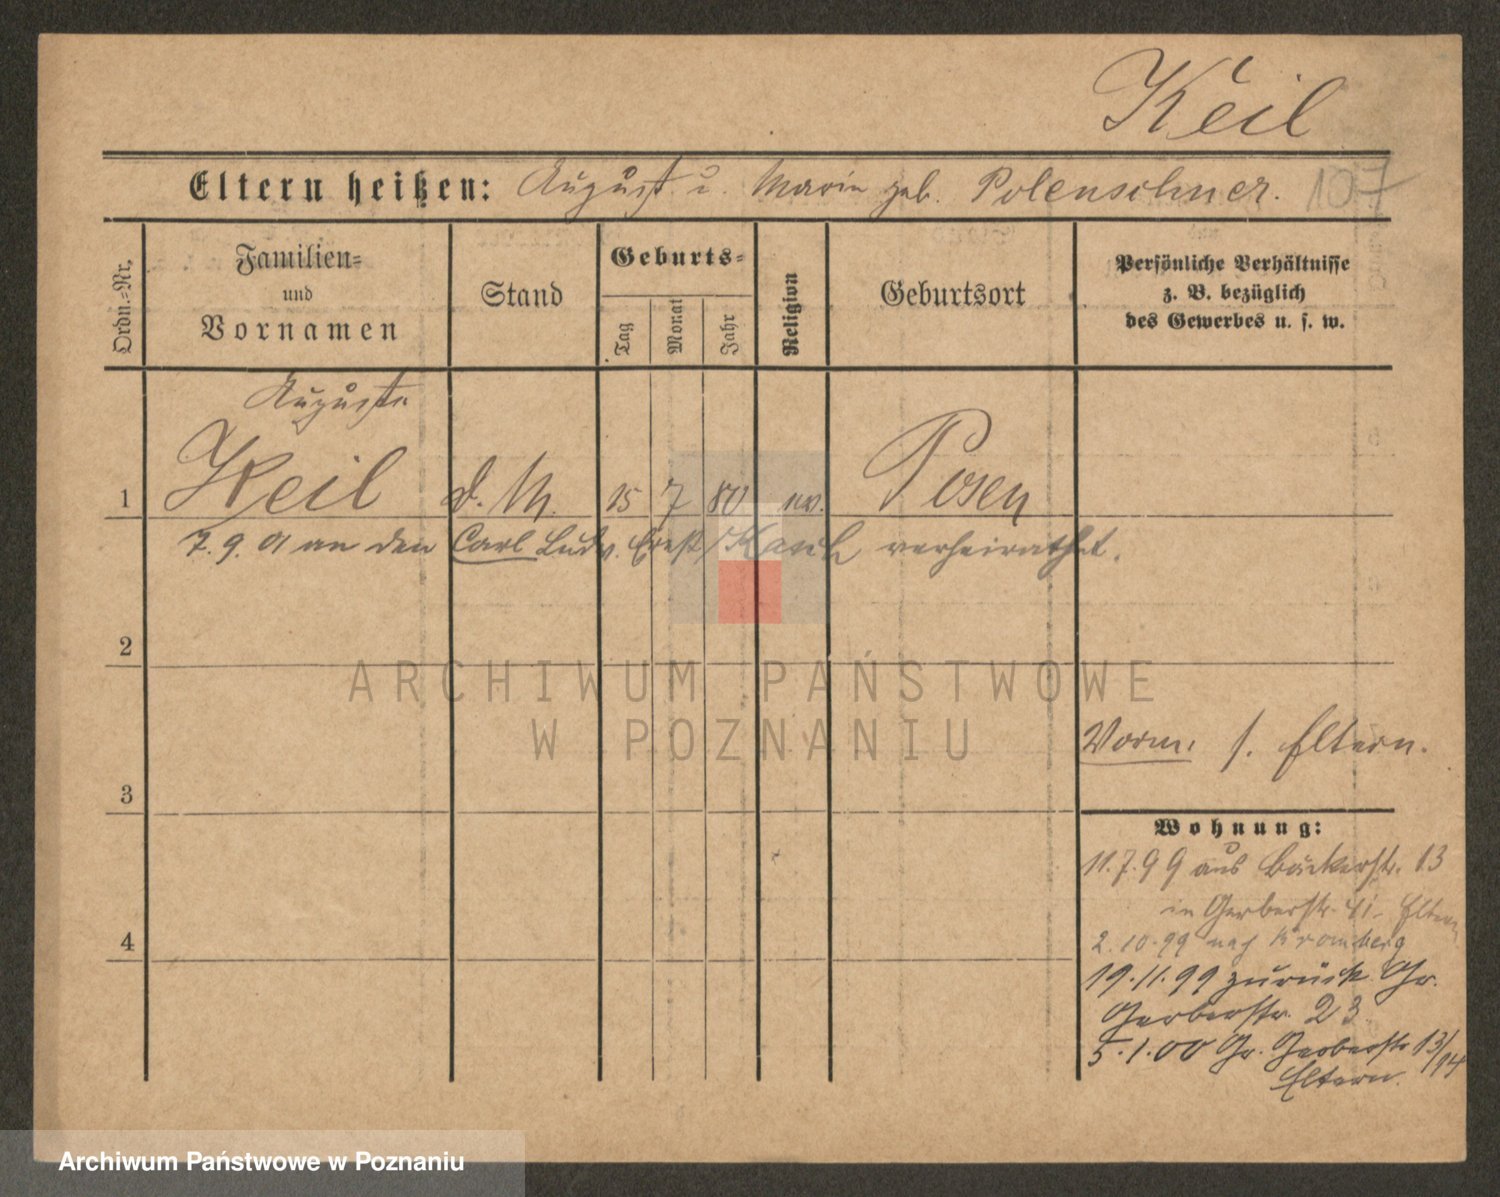 Keil
Eltern heißen: August u. Maria geb. Polenschner. 107
Ordn.=Nr.
Familien=
und
Vornamen
Stand
Geburts=
Tag
Monat
Jahr
Religion
Geburtsort
Persönliche Verhältnisse
z. B. bezüglich
des Gewerbes u. s. w.
Auguste
1 Keil d. M. 15 7 80 ev. Posen
7. 9. 01 an den Carl Ludw. Ernst verheirathet.
2
ARCHIWUM PAŃSTWOWE
W POZNANIU
Vorm. s. Eltern.
3
Wohnung:
11.7.99 aus Bäckerstr. 13
in Gerberstr. Eltern
4
2.10.99 nach Bromberg
19.11.99 zurück Gr.
Gerberstr. 23
5.1.00 Gr. Gerberstr 13/14
Eltern.
Archiwum Państwowe w Poznaniu